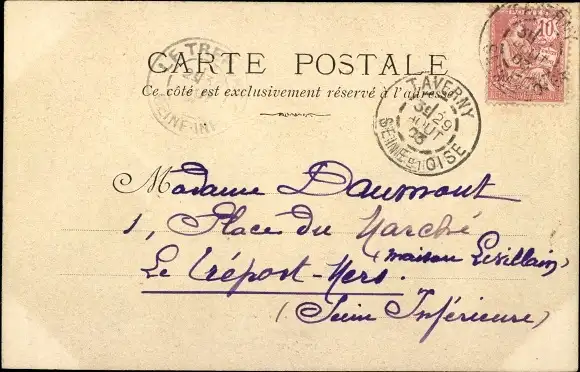 CARTE POSTALE
Ce côté est exclusivement réservé à l'adresse
LE TRE
TAVERNY
29
AOUT
03
SEINE-ET-OISE
SEINE-INF
Madame Daumont
1, Place du Marché
(maison Levillain)
Le Tréport-Mers.
(Seine Inférieure)
10